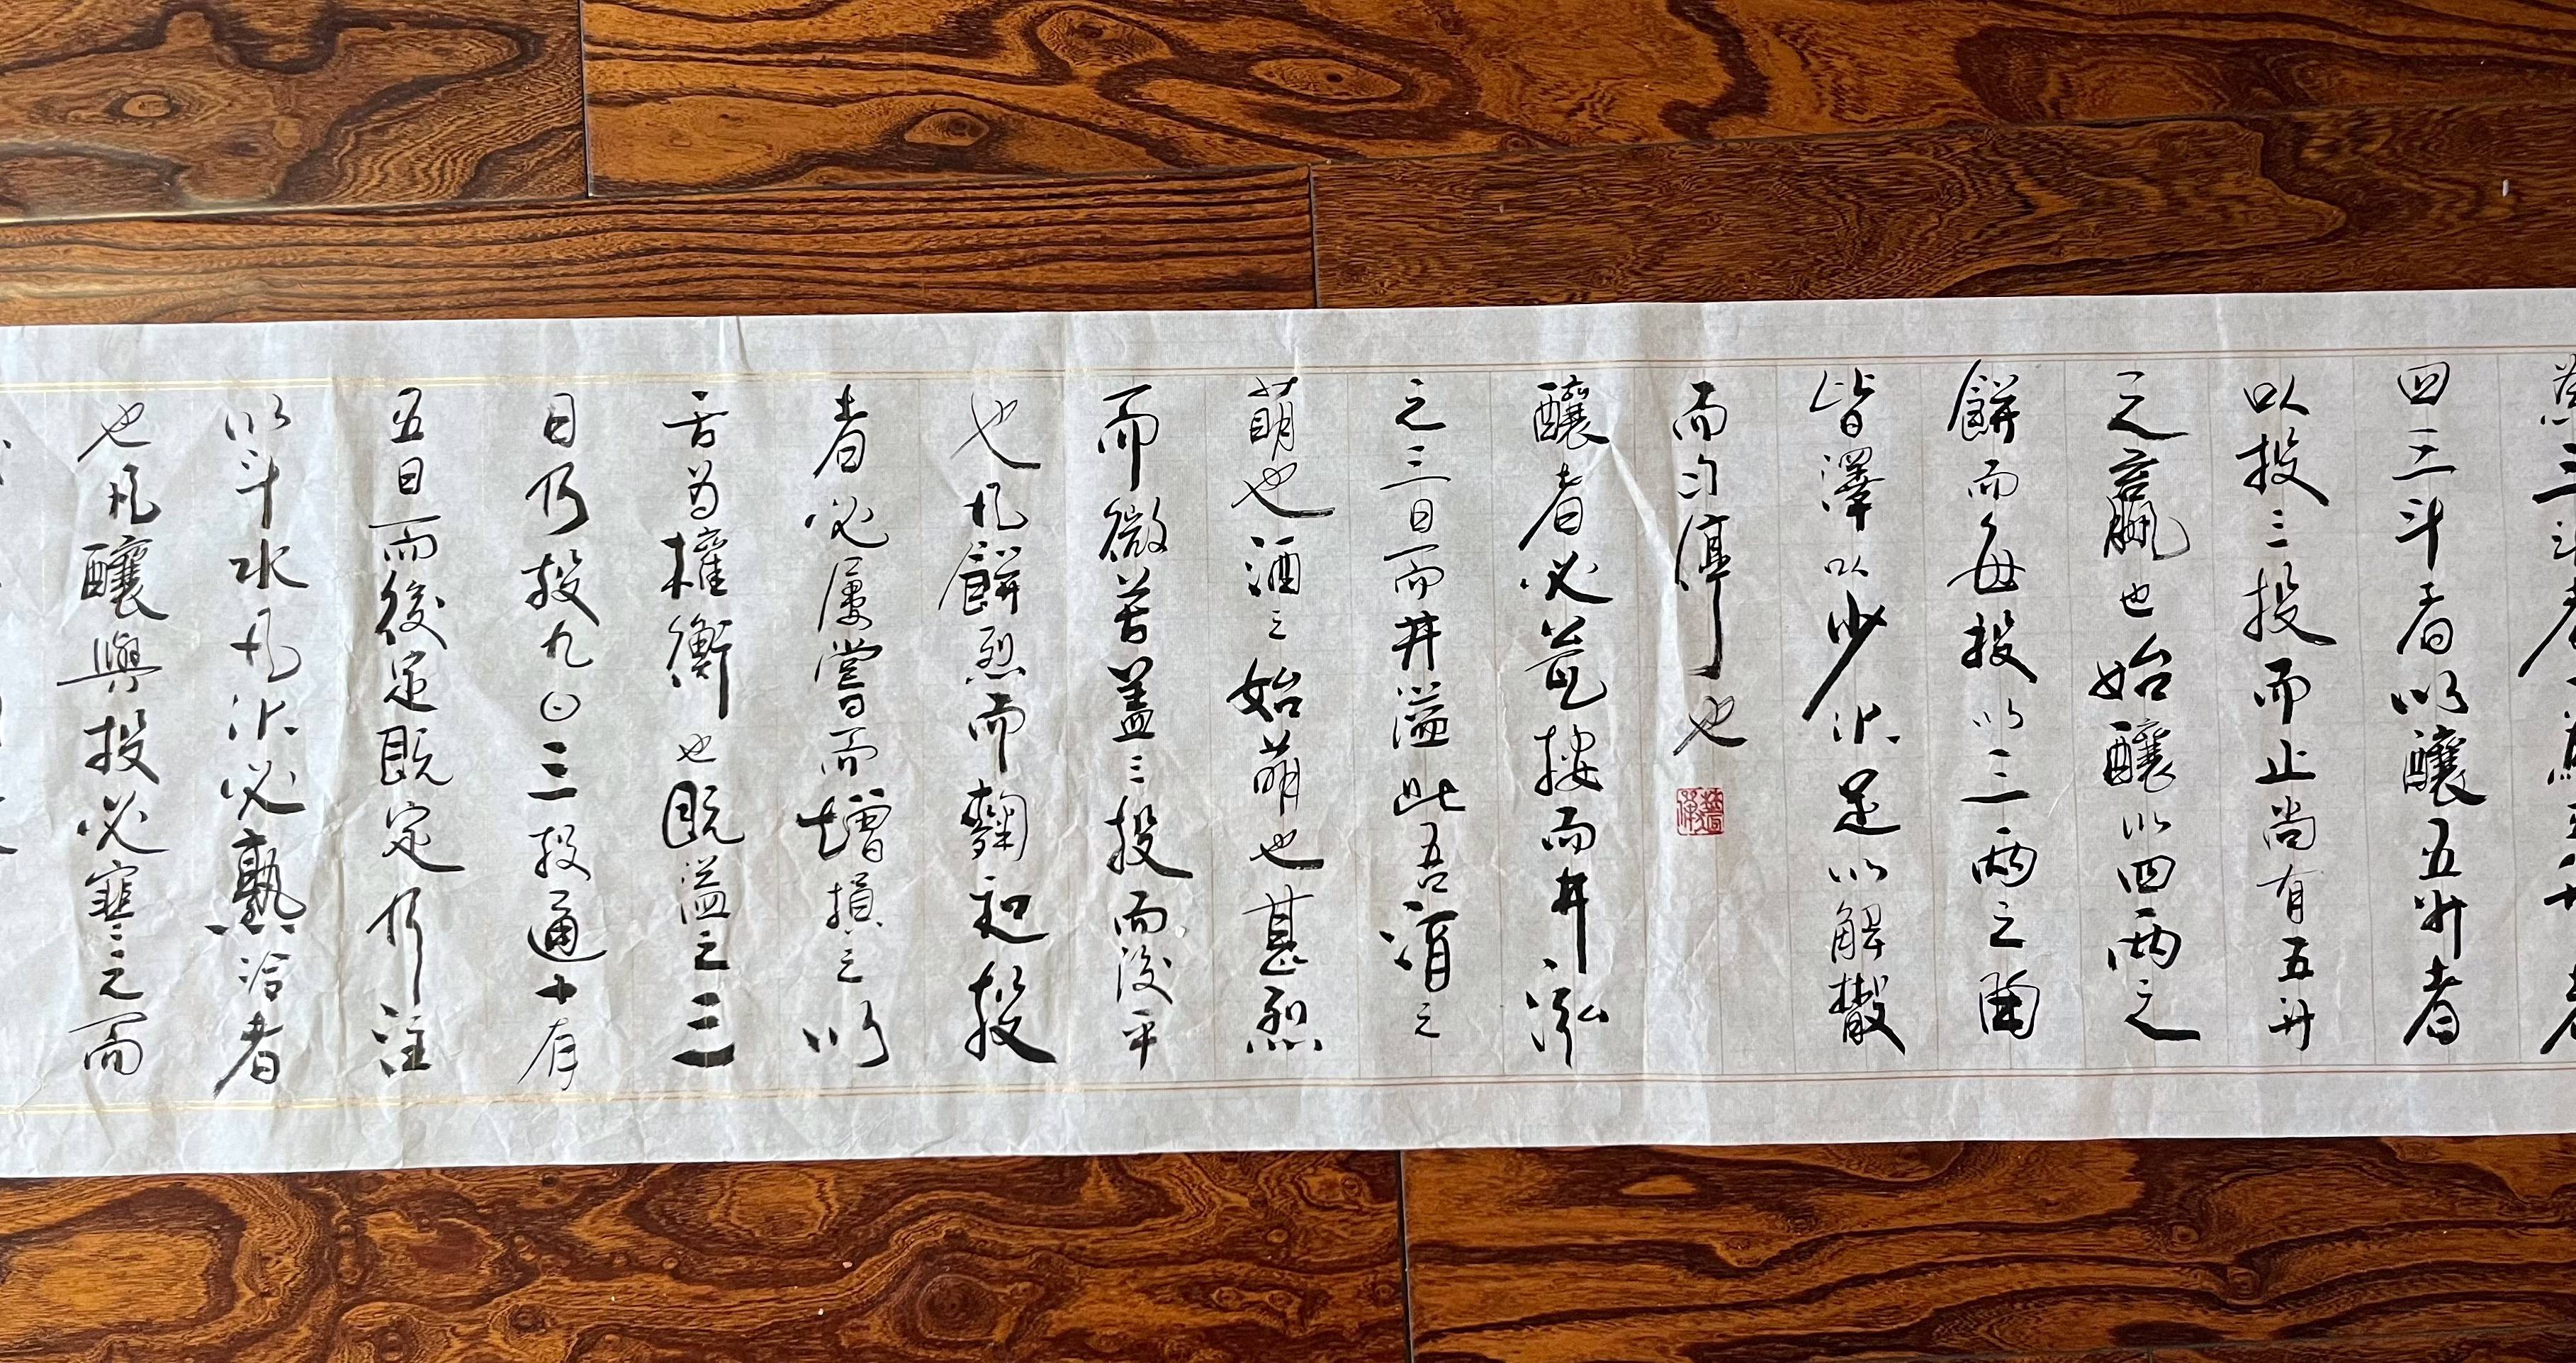 四三斗者以釀五升者
以投三投而止尚有五升
之贏也始釀以四兩之
餅而每投以三兩之麴
皆澤以少水足以解散
而勻停也
釀者必甕按而井泓
之三日而井溢此吾酒之
萌也酒之始萌也甚烈
而微苦蓋三投而後平
也凡餅烈而麴和投
者必屢嘗而增損之以
舌為權衡也既溢之三
日乃投九日三投通十有
五日而後定既定乃注
以斗水凡水必熟冷者
也凡釀與投必寒之而